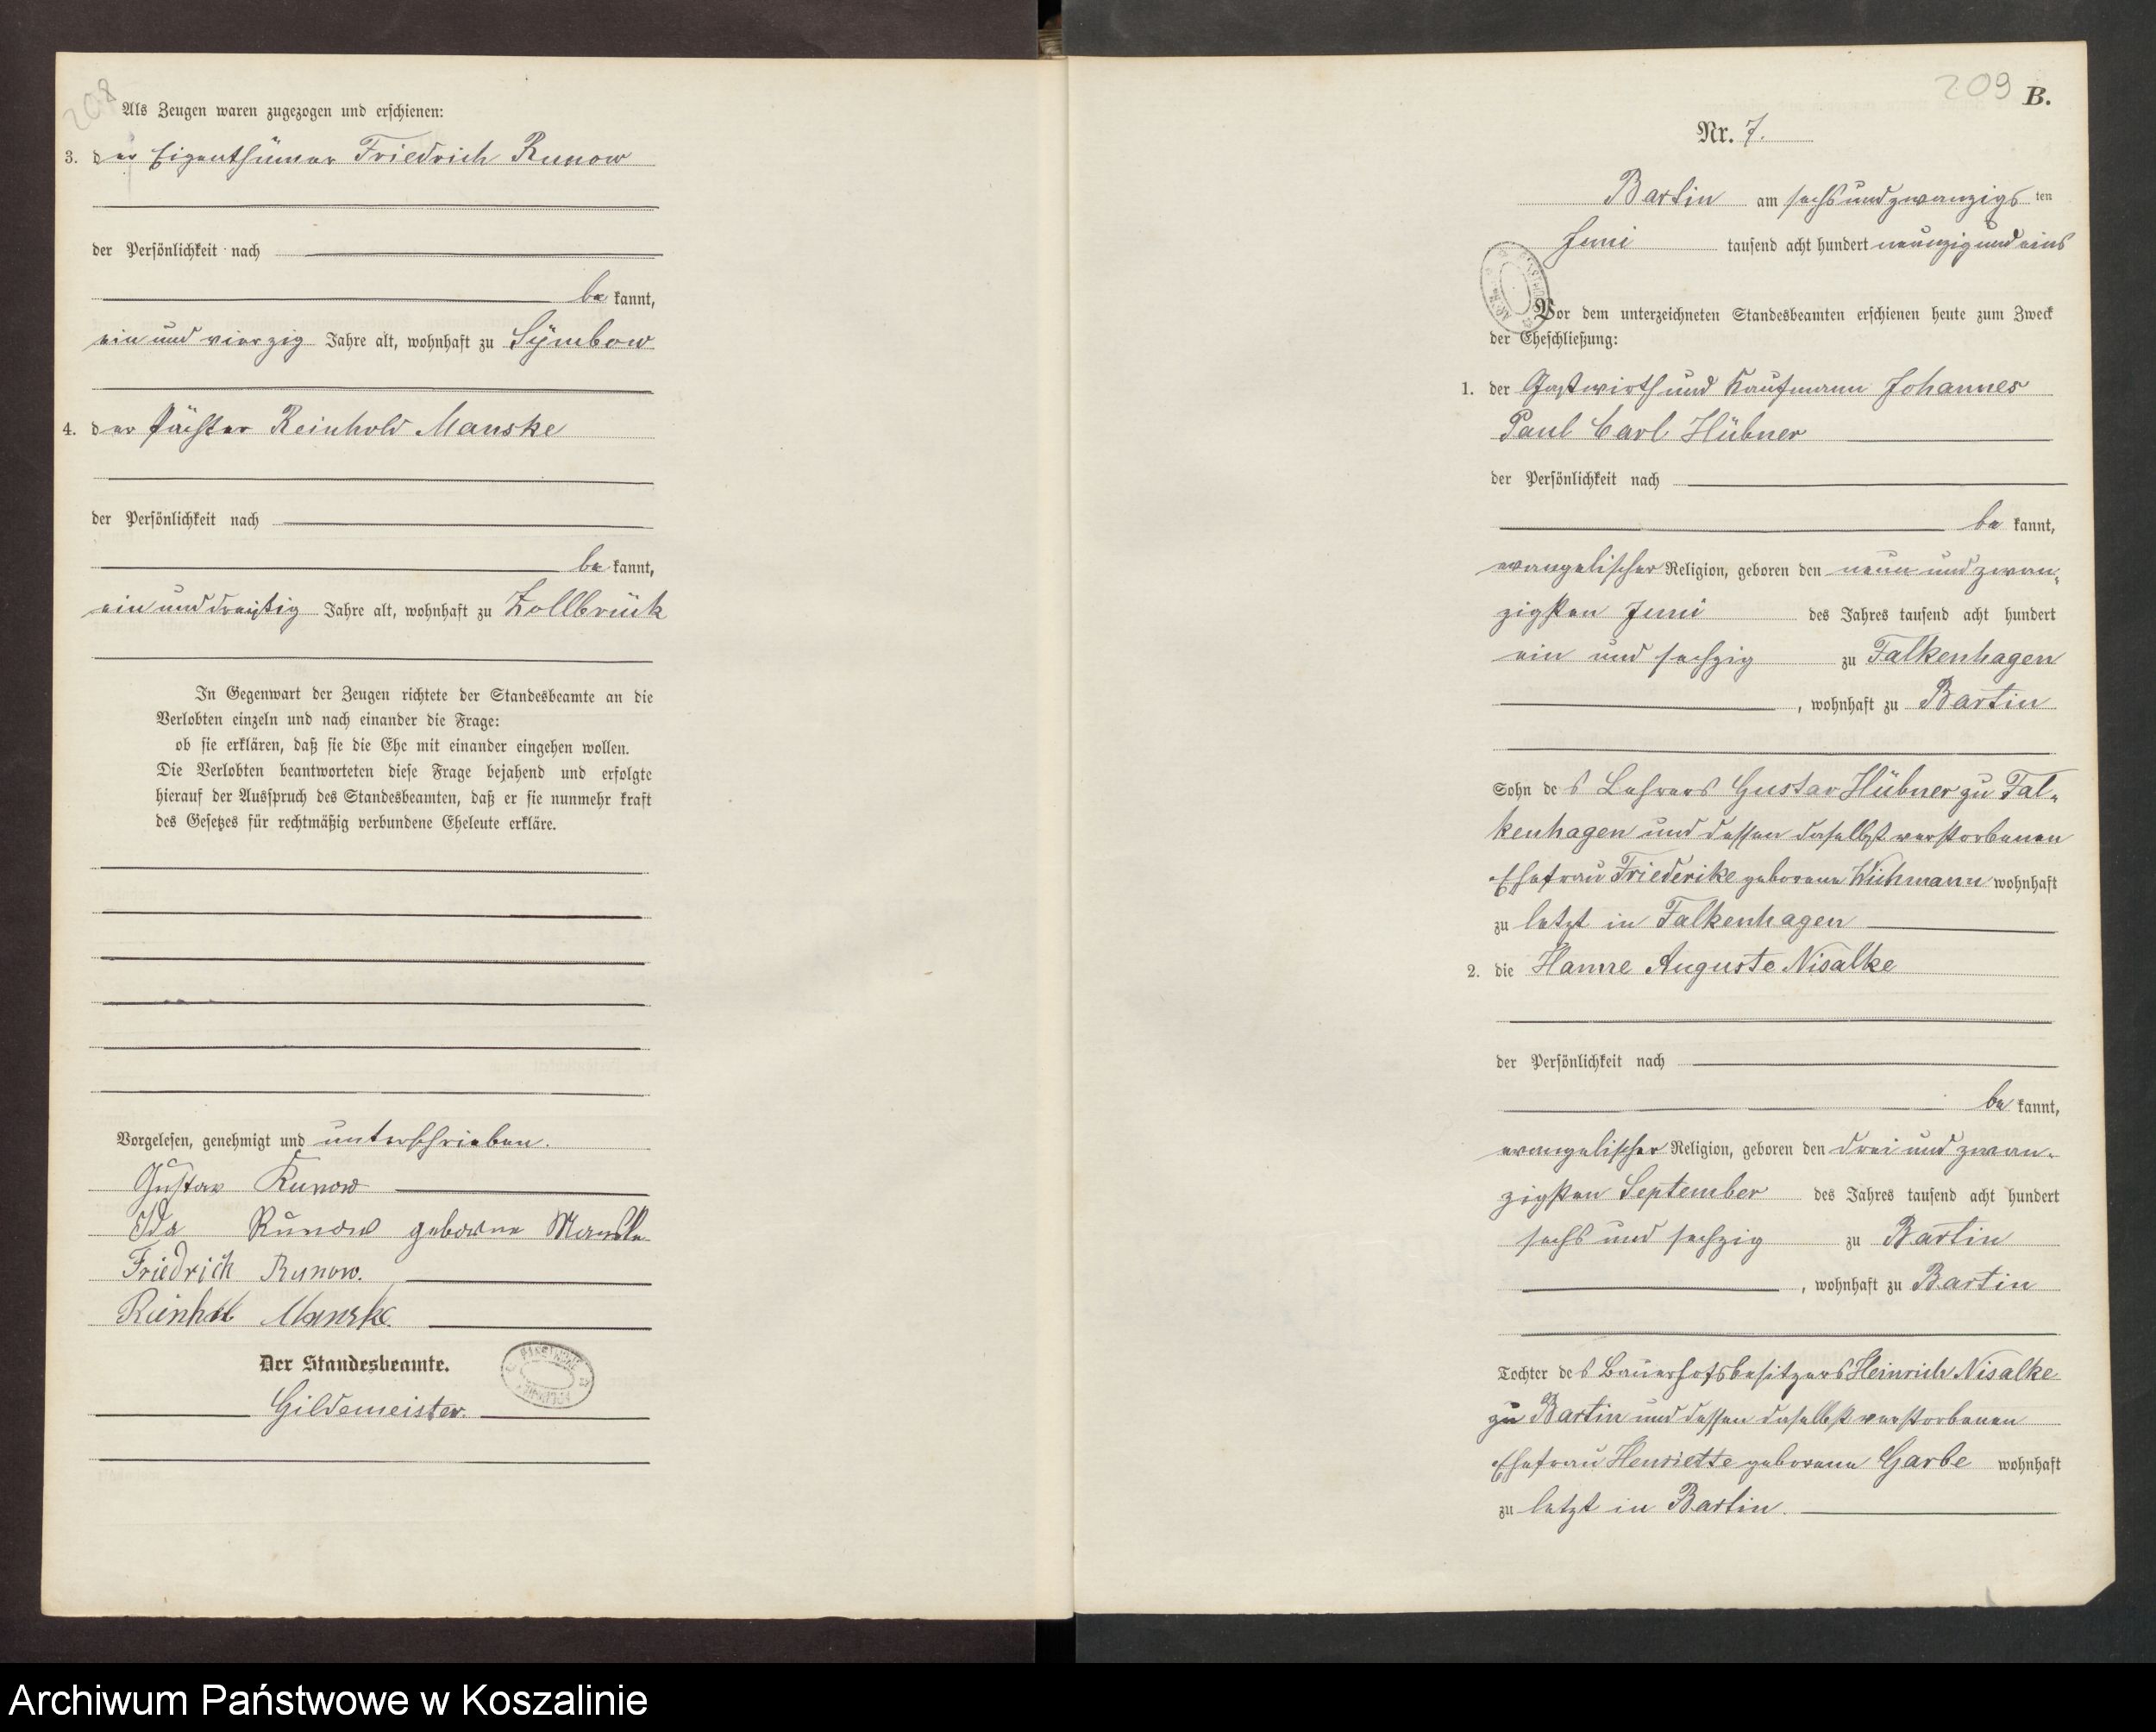 208
Als Zeugen waren zugezogen und erschienen:
3. der Eigenthümer Friedrich Runow
der Persönlichkeit nach
be kannt,
ein und vierzig Jahre alt, wohnhaft zu Symbow
4. der Pächter Reinhold Manske
der Persönlichkeit nach
be kannt,
ein und dreißig Jahre alt, wohnhaft zu Zollbrück
In Gegenwart der Zeugen richtete der Standesbeamte an die
Verlobten einzeln und nach einander die Frage:
ob sie erklären, daß sie die Ehe mit einander eingehen wollen.
Die Verlobten beantworteten diese Frage bejahend und erfolgte
hierauf der Ausspruch des Standesbeamten, daß er sie nunmehr kraft
des Gesetzes für rechtmäßig verbundene Eheleute erkläre.
Vorgelesen, genehmigt und unterschrieben.
Gustav Runow
Ida Runow geborne Manske
Friedrich Runow.
Reinhold Manske
Der Standesbeamte.
Gildemeister.
209
B.
Nr. 7.
Bartin am sechs und zwanzigs ten
Juni tausend acht hundert neunzig und eins
Vor dem unterzeichneten Standesbeamten erschienen heute zum Zweck
der Eheschließung:
1. der Gastwirth und Kaufmann Johannes
Paul Carl Hübner
der Persönlichkeit nach
be kannt,
evangelischer Religion, geboren den neun und zwan-
zigsten Juni des Jahres tausend acht hundert
ein und sechzig zu Falkenhagen
, wohnhaft zu Bartin
Sohn des Lehrers Gustav Hübner zu Fal-
kenhagen und dessen daselbst verstorbenen
Ehefrau Friederike geborene Wichmann wohnhaft
zu letzt in Falkenhagen
2. die Hanne Auguste Nisalke
der Persönlichkeit nach
be kannt,
evangelischer Religion, geboren den drei und zwan-
zigsten September des Jahres tausend acht hundert
sechs und sechzig zu Bartin
, wohnhaft zu Bartin
Tochter des Bauerhofsbesitzers Heinrich Nisalke
zu Bartin und dessen daselbst verstorbenen
Ehefrau Henriette geborene Garbe wohnhaft
zu letzt in Bartin.
Archiwum Państwowe w Koszalinie